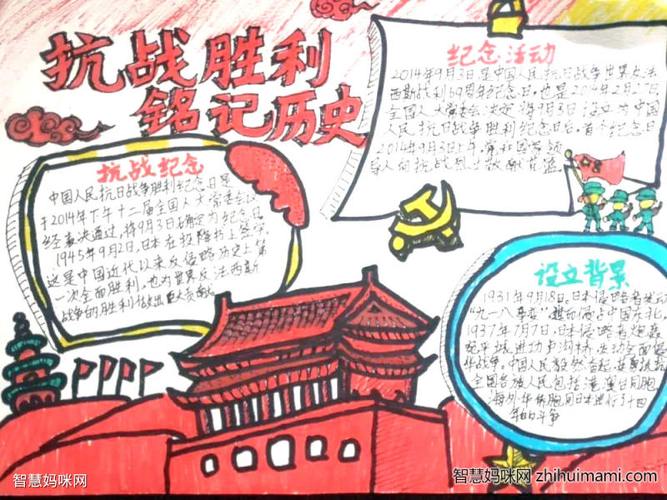 抗战胜利
铭记历史
纪念活动
2014年9月3日是中国人民抗日战争世界反法
西斯战利69周年纪念日,也是2014年2月27日
全国人大常委会决定将9月3日设立为中国
人民抗日战争胜利纪念日后,首个纪念日
2014年9月3日上午
抗战纪念
中国人民抗日战争胜利纪念日是
于2014年下午十二届全国人大常委会议
经表决通过,将9月3日确定为纪念日
1945年9月2日,日本在投降书上签字
这是中国近代以来反侵略历史上第
一次全面胜利,也为世界反法西斯
战争的胜利做出巨大贡献
设立背景
1931年9月18日,日本侵略者发动
"九一八事变",中国东北。
1937年7月7日,日本侵略者炮轰
宛平城进攻卢沟桥,发动全面侵
华战争。中国人民毅然奋起
全国各族人民包括港澳台同胞
海外华侨同胞同日本进行了十四
年的斗争
智慧妈咪网
智慧妈咪网 zhihuimami.com